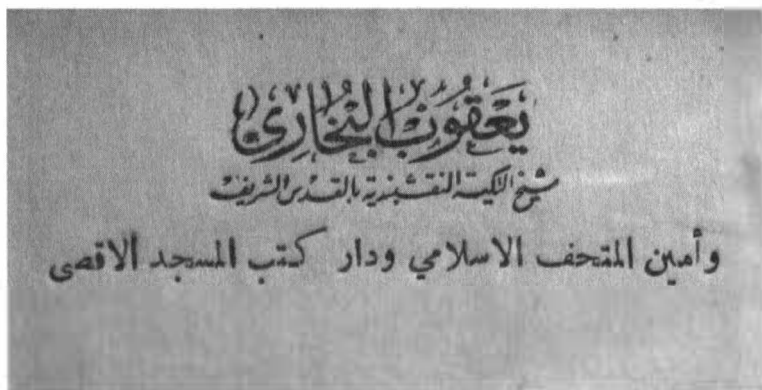 يعقوب البخاري
شيخ التكية النقشبندية بالقدس الشريف
وأمين المتحف الاسلامي ودار كتب المسجد الاقصى